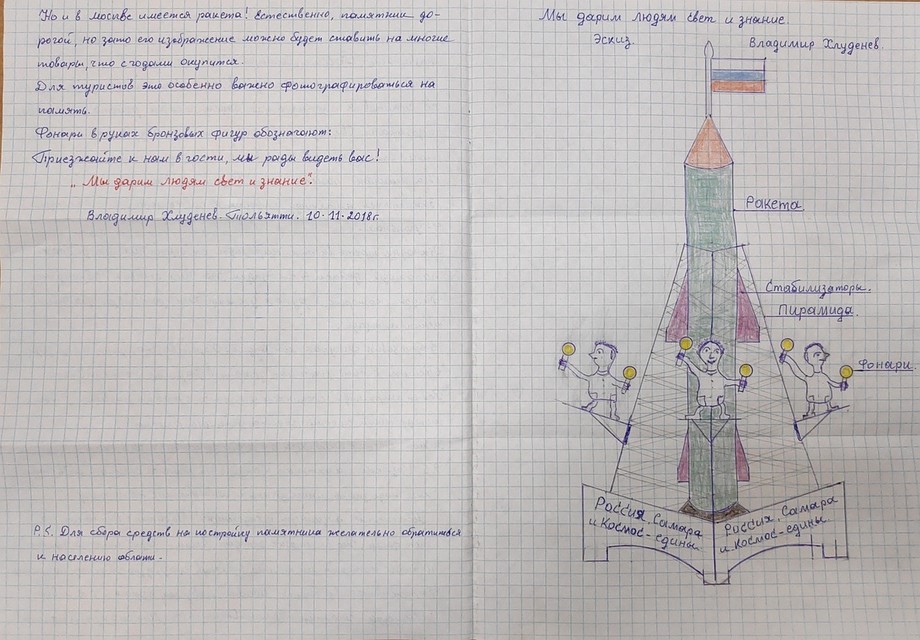 Но и в Москве имеется ракета! Естественно, памятник до-
рогой, но зато его изображение можно будет ставить на многие
товары, что с годами окупится.
Для туристов это особенно важно фотографироваться на
память.
Фонари в руках бронзовых фигур обозначают:
Приезжайте к нам в гости, мы рады видеть вас!
„Мы дарим людям свет и знание".
Владимир Хлуденев - Тольятти. 10·11·2018г.
P.S. Для сбора средств на постройку памятника желательно обратиться
к населению области.
Мы дарим людям свет и знание.
Эскиз.
Владимир Хлуденев.
Ракета
Стабилизаторы.
Пирамида.
Фонари.
Россия, Самара
и Космос-едины
Россия, Самара
и Космос-едины